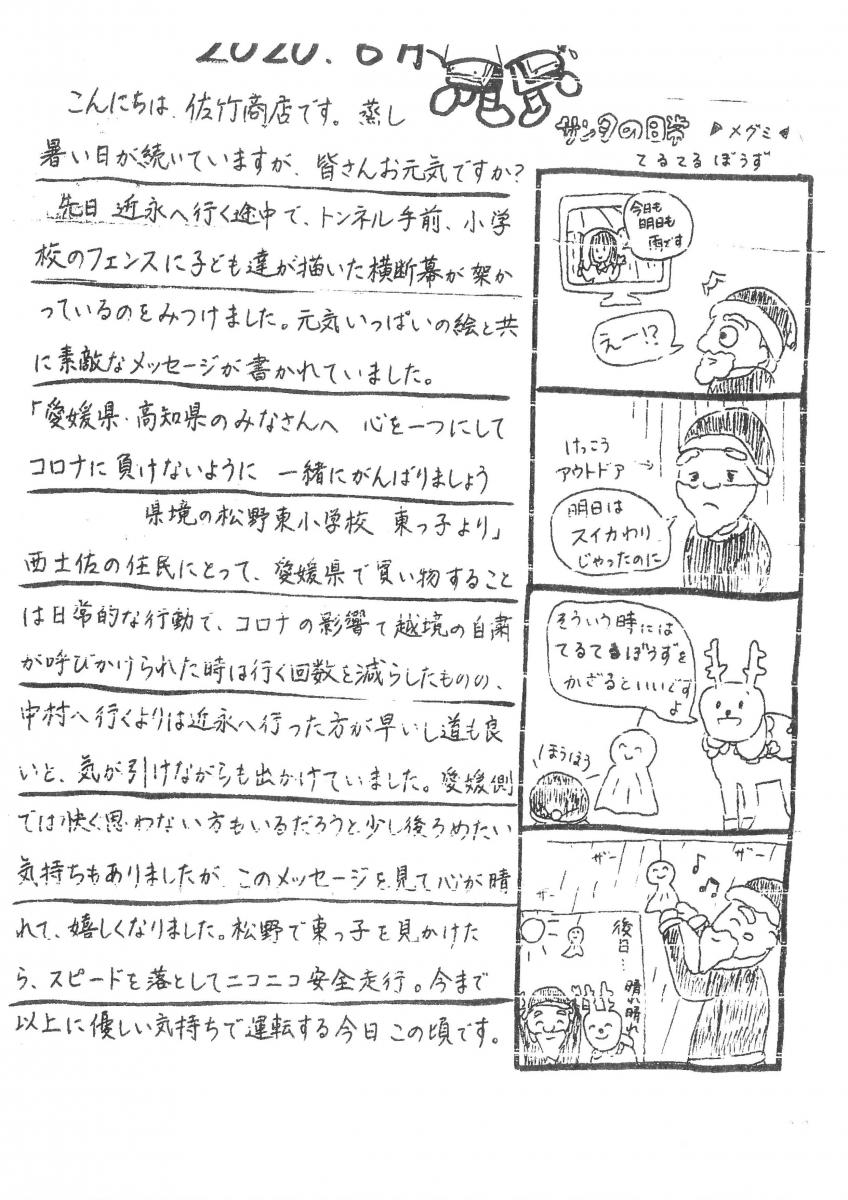 2020.6月
こんにちは、佐竹商店です。蒸し
暑い日が続いていますが、皆さんお元気ですか？
先日 近永へ行く途中で、トンネル手前、小学
校のフェンスに子ども達が描いた横断幕が架か
っているのをみつけました。元気いっぱいの絵と共
に素敵なメッセージが書かれていました。
「愛媛県・高知県のみなさんへ 心を一つにして
コロナに負けないように 一緒にがんばりましょう
県境の松野東小学校 東っ子より」
西土佐の住民にとって、愛媛県で買い物すること
は日常的な行動で、コロナの影響で越境の自粛
が呼びかけられた時は行く回数を減らしたものの、
中村へ行くよりは近永へ行った方が早いし道も良
いと、気が引けながらも出かけていました。愛媛側
では快く思わない方もいるだろうと少し後ろめたい
気持ちもありましたが、このメッセージを見て心が晴
れて、嬉しくなりました。松野で東っ子を見かけた
ら、スピードを落としてニコニコ安全走行。今まで
以上に優しい気持ちで運転する今日この頃です。
サンタの日常 ▶メグミ◀
てるてるぼうず
今日も
明日も
雨です
えー!?
けっこう
アウトドア
明日は
スイカわり
じゃったのに
そういう時には
てるてるぼうずを
かざるといいです
よ
ほうほう
ザー
ザー
ザー
後日…
晴れ晴れ